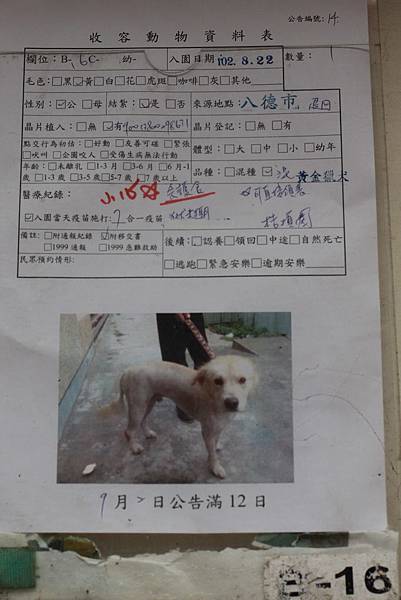 公告編號:14
收容動物資料表
欄位:B-16C- 幼- 入園日期 102.8.22 數量: 1
毛色:□黑☑黃□白□花□虎斑□咖啡□灰□其他
性別:☑公□母 結紮:☑是□否 來源地點:八德市
晶片植入:□無☑有 晶片登記:□無□有
點交行為初估:□好動□友善可碰□緊張
□吠叫□企圖咬人□受傷生病無法行動
體型:□大□中□小□幼年
年齡:□未離乳□1-3月□3-6月□6月-1
歲□1-3歲□3-5歲□5-7歲□7歲以上
品種:□混種☑混 黃金獵犬
醫療紀錄:
☑入園當天疫苗施打:7合一疫苗
備註:□附通報紀錄☑附移交書
□1999通報□1999急難救助
後續:□認養□領回□中途□自然死亡
□逃跑□緊急安樂□逾期安樂
民眾預約情形:
9月2日公告滿12日
B-16